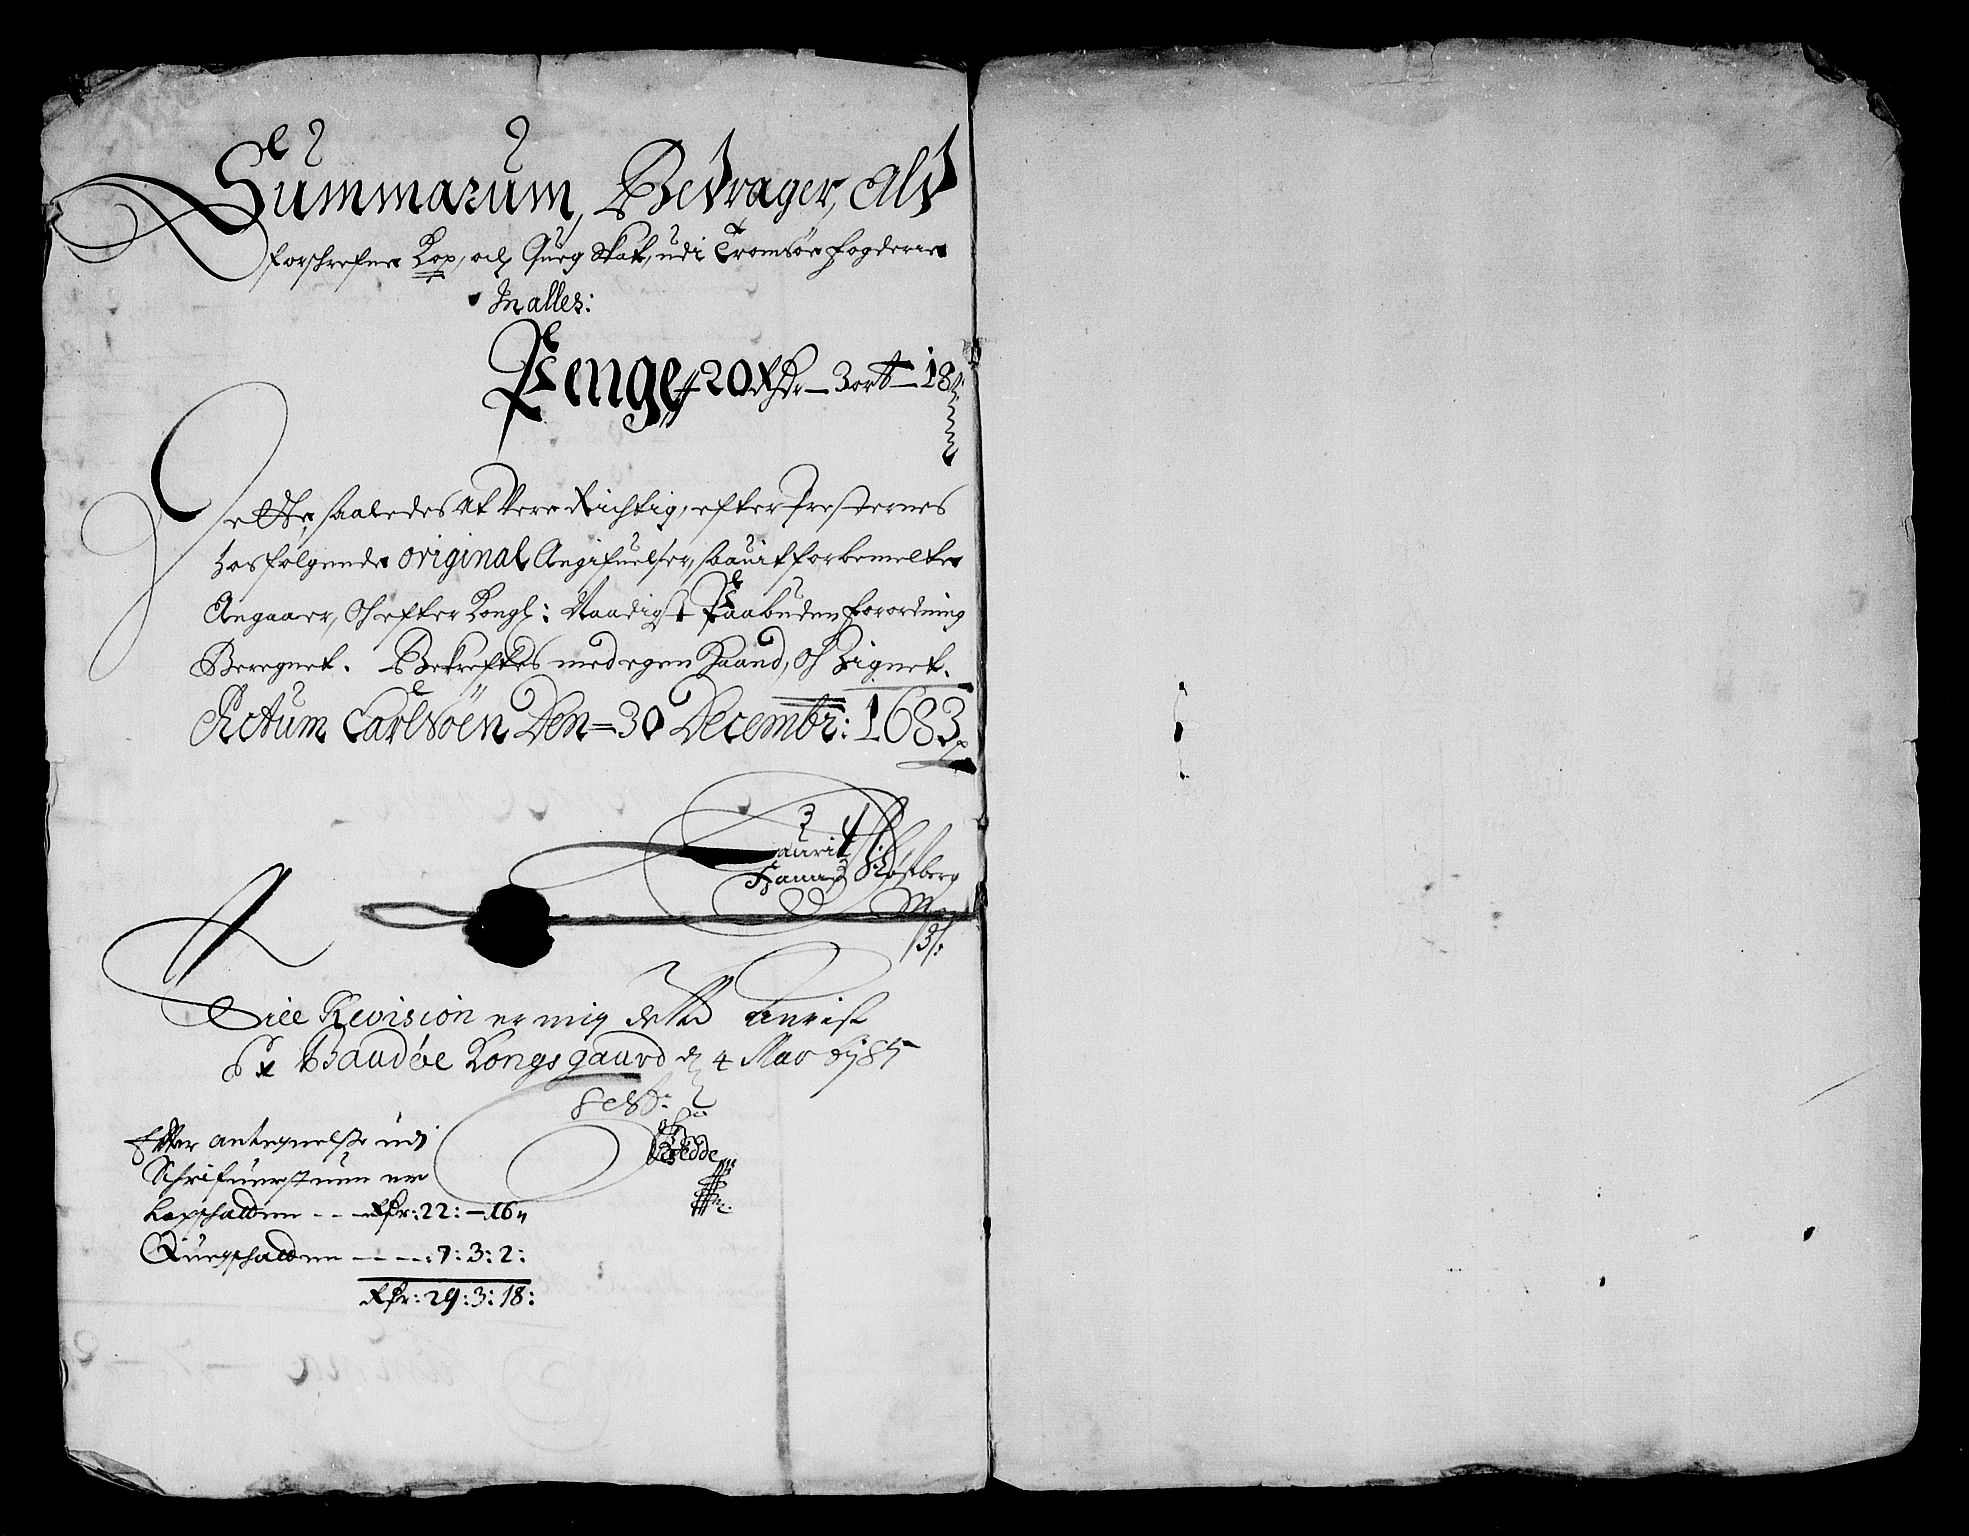 Summarum, Bedrager, Alt
forschrefne Kop, och Queg Skat, udi Tromsøe fogderie
Inalles:
Penge 20 Rdr — 3 ort — 18
Dette saaledes at Vere Richtig, efter Presternes
hosfølgende original Angifuelser, saauit forbemelte
Angaaer, Och efter Kongl: Naadigst Paabuden forordning
Beregnet. Bekreftes med egen Haand, Och Zignet.
Actum Carlsöen Den = 30 Decembr: 1683
Laurit
Røstberg
Mpp
Ved Revision er mig dette
Baadøe Kongsgaard d 4 Mar 1685
Efter antegnelse udi
Schrifuerstuen er
Kopschatten - - Rdr: 22: — 16
Quegschatten - - - : 7: 3: 2:
Rdr: 29: 3: 18: